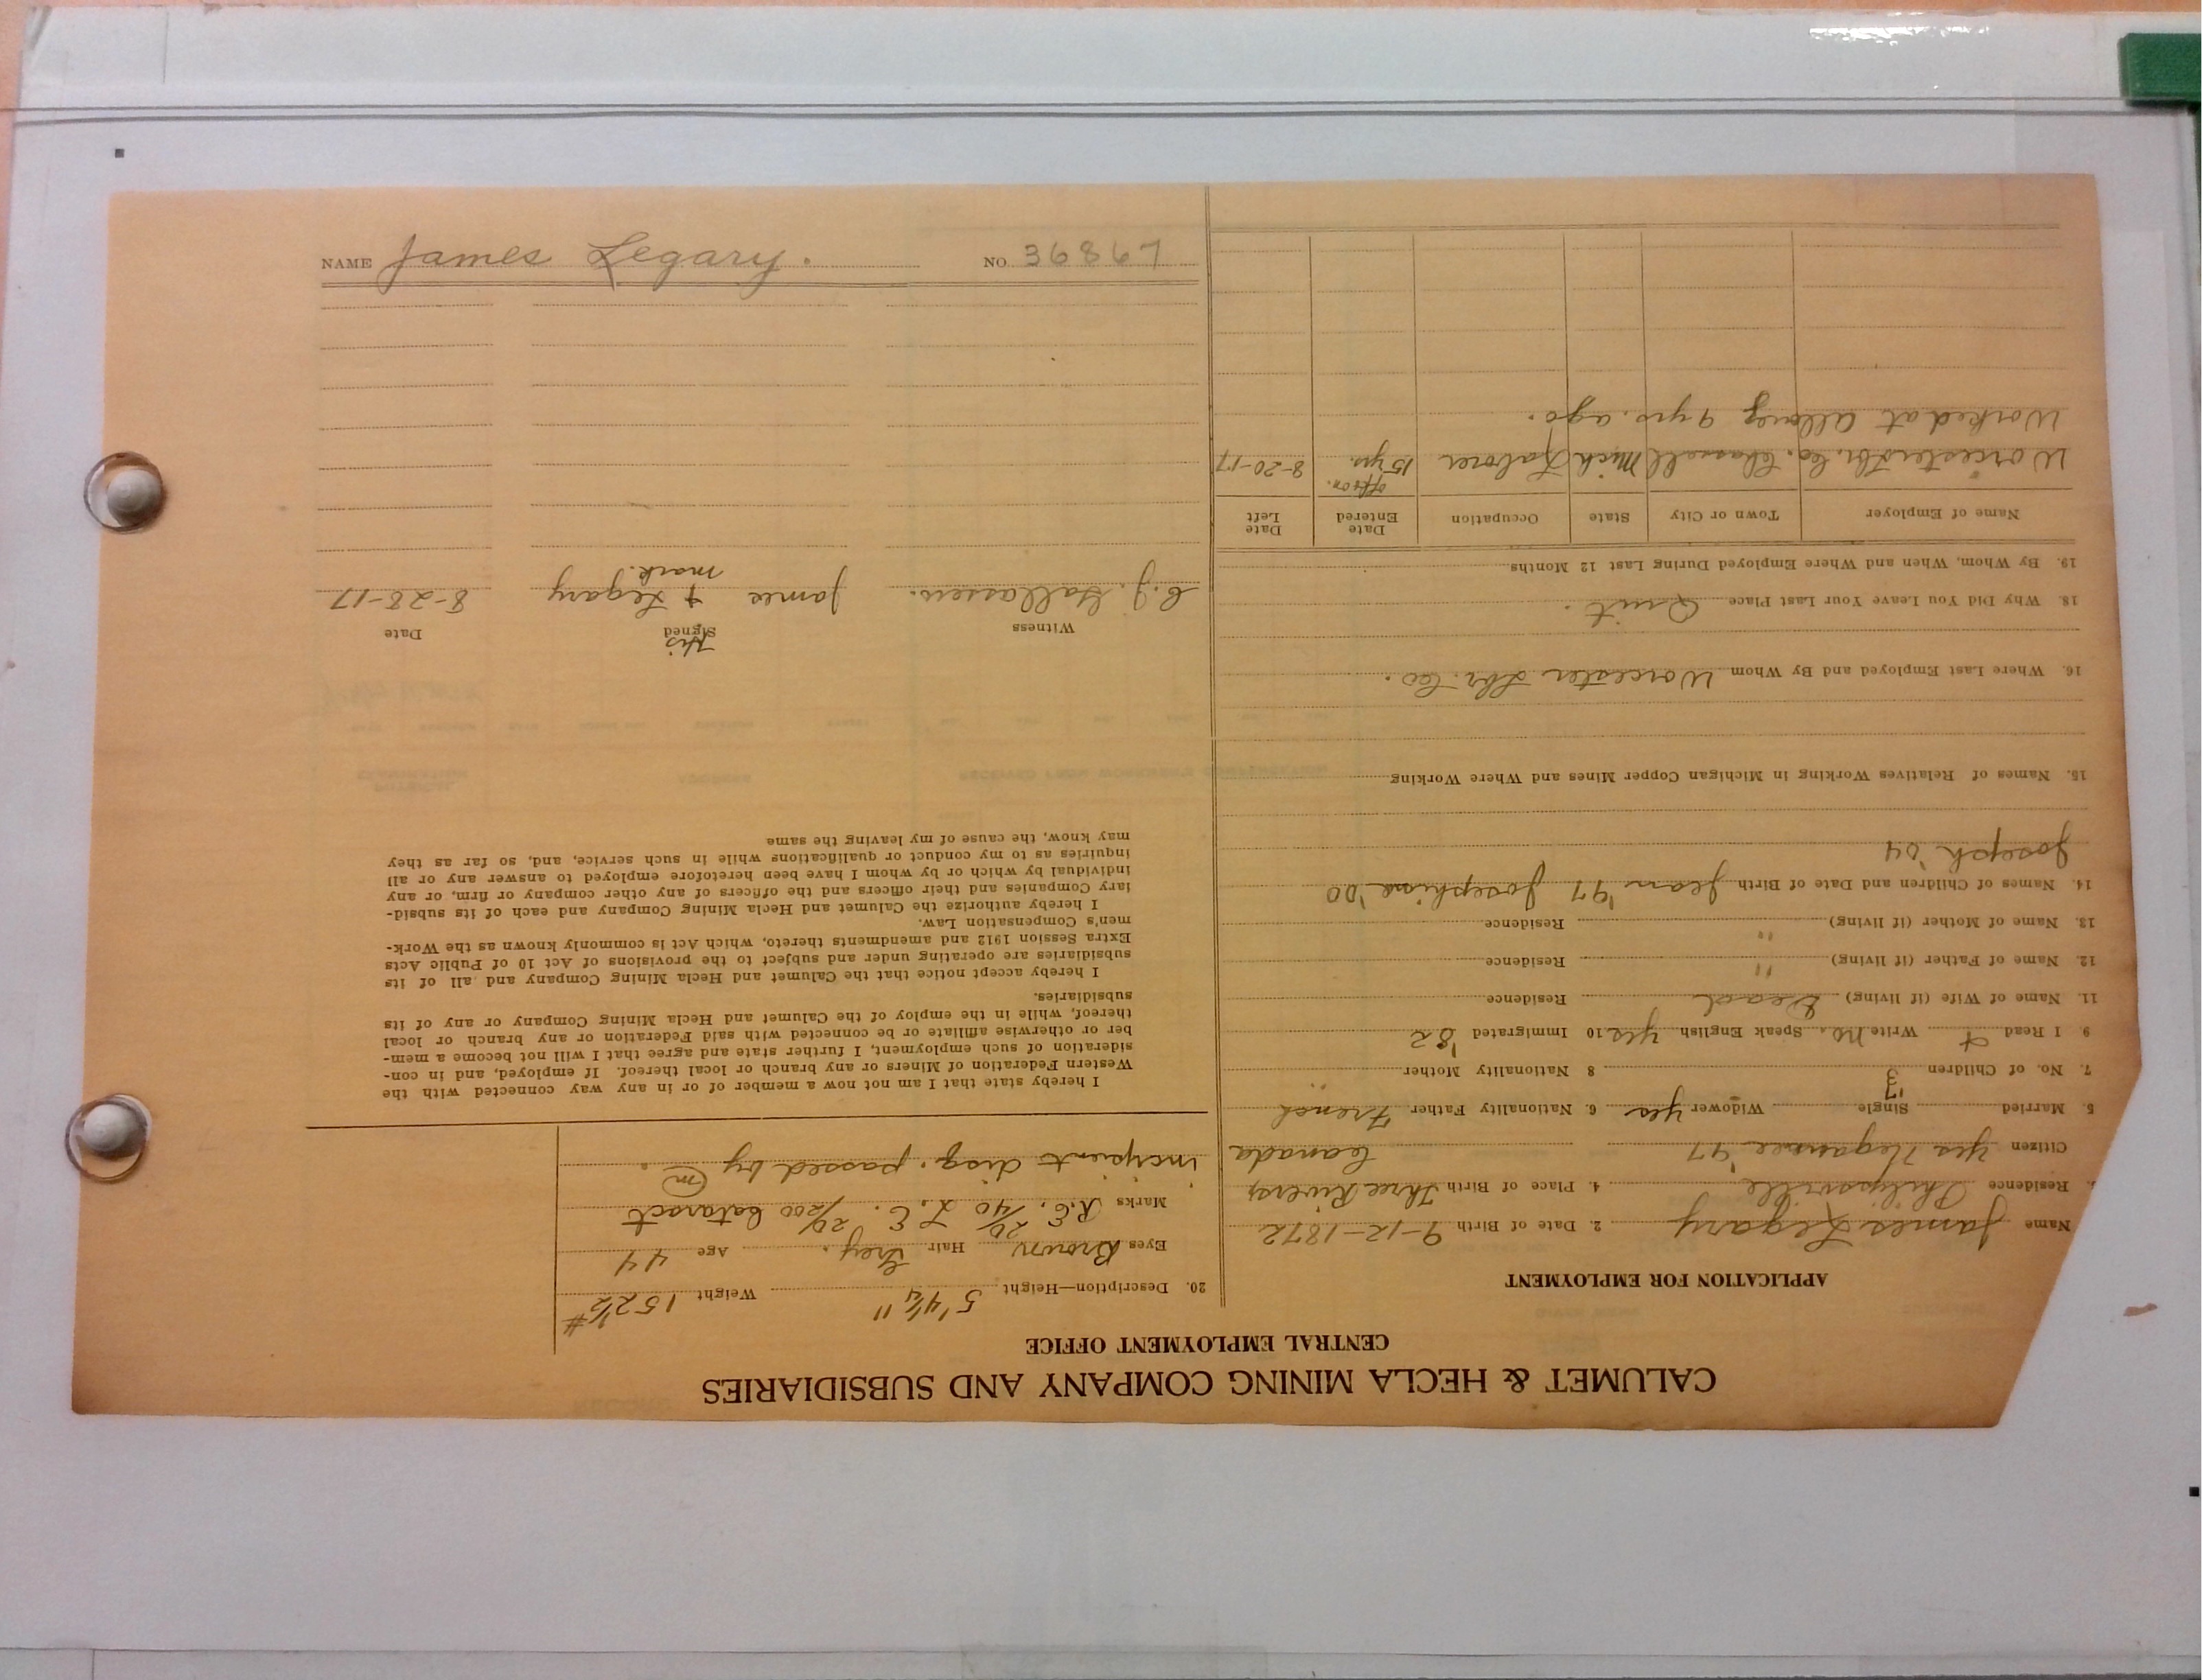 CALUMET & HECLA MINING COMPANY AND SUBSIDIARIES
CENTRAL EMPLOYMENT OFFICE
APPLICATION FOR EMPLOYMENT
Name James Legary 2. Date of Birth 9-12-1872
Residence Phillipsville 4. Place of Birth Three Rivers,
Citizen Yes Negaunee '97 Canada
5. Married Single Widower Yes 6. Nationality Father French
7. No. of Children 3 8 Nationality Mother "
9 I Read + Write No. Speak English Yes 10 Immigrated '82
11. Name of Wife (if living) Dead Residence
12. Name of Father (if living) " Residence
13. Name of Mother (if living) " Residence
14. Names of Children and Date of Birth Jean '97 Josephine '00
Joseph '04
15. Names of Relatives Working in Michigan Copper Mines and Where Working
16. Where Last Employed and By Whom Worcester Lbr. Co.
18. Why Did You Leave Your Last Place Quit.
19. By Whom, When and Where Employed During Last 12 Months
Name of Employer Town or City State Occupation Date Entered Date Left
Worcester Lbr. Co. Chassell Mich Laborer off & on. 15 yrs. 8-20-17
Worked at Allouez 9 yrs. ago.
20. Description—Height 5'4¼" Weight 152½#
Eyes Brown Hair Grey. Age 44
Marks R.E. 20/40 L.E. 20/200 Cataract
incipient disq. passed by m.
I hereby state that I am not now a member of or in any way connected with the
Western Federation of Miners or any branch or local thereof. If employed, and in con-
sideration of such employment, I further state and agree that I will not become a mem-
ber or otherwise affiliate or be connected with said Federation or any branch or local
thereof, while in the employ of the Calumet and Hecla Mining Company or any of its
subsidiaries.
I hereby accept notice that the Calumet and Hecla Mining Company and all of its
subsidiaries are operating under and subject to the provisions of Act 10 of Public Acts
Extra Session 1912 and amendments thereto, which Act is commonly known as the Work-
men's Compensation Law.
I hereby authorize the Calumet and Hecla Mining Company and each of its subsid-
iary Companies and their officers and the officers of any other company or firm, or any
individual by which or by whom I have been heretofore employed to answer any or all
inquiries as to my conduct or qualifications while in such service, and, so far as they
may know, the cause of my leaving the same
Witness Signed Date
His
C.J. James + Legary 8-28-17
mark.
NAME James Legary. NO. 36867